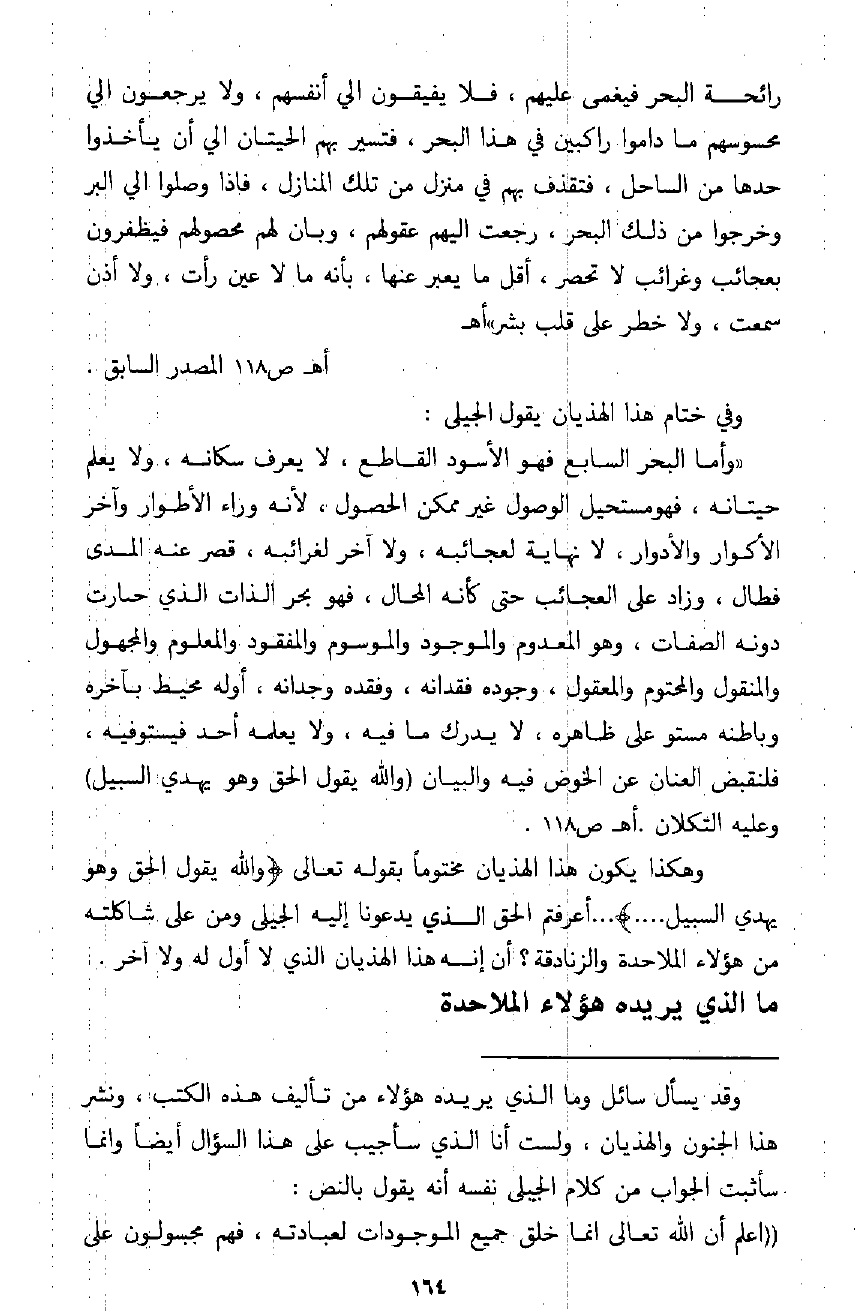 رائحة البحر فيغمى عليهم ، فلا يفيقون الي أنفسهم ، ولا يرجعون الي
محسوسهم ما داموا راكبين في هذا البحر ، فتسير بهم الحيتان الي أن يأخذوا
حدها من الساحل ، فتقذف بهم في منزل من تلك المنازل ، فإذا وصلوا الي البر
وخرجوا من ذلك البحر ، رجعت اليهم عقولهم ، وبان لهم محصولهم فيظفرون
بعجائب وغرائب لا تحصر ، أقل ما يعبر عنها ، بأنه ما لا عين رأت ، ولا أذن
سمعت ، ولا خطر على قلب بشر»أهـ
أهـ ص١١٨ المصدر السابق .
وفي ختام هذا الهذيان يقول الجيلى :
«وأما البحر السابع فهو الأسود القاطع ، لا يعرف سكانه ، ولا يعلم
حيتانه ، فهومستحيل الوصول غير ممكن الحصول ، لأنه وراء الأطوار وآخر
الأكوار والأدوار ، لا نهاية لعجائبه ، ولا آخر لغرائبه ، قصر عنه المدى
فطال ، وزاد على العجائب حتى كأنه المحال ، فهو بحر الذات الذي حارت
دونه الصفات ، وهو المعدوم والموجود والموسوم والمفقود والمعلوم والمجهول
والمنقول والمختوم والمعقول ، وجوده فقدانه ، وفقده وجدانه ، أوله محيط بآخره
وباطنه مستو على ظاهره ، لا يدرك ما فيه ، ولا يعلمه أحد فيستوفيه ،
فلنقبض العنان عن الخوض فيه والبيان (والله يقول الحق وهو يهدي السبيل)
وعليه التكلان .أهـ ص١١٨ .
وهكذا يكون هذا الهذيان مختوماً بقوله تعالى ﴿والله يقول الحق وهو
يهدي السبيل....﴾...أعرفتم الحق الذي يدعونا إليه الجيلى ومن على شاكلته
من هؤلاء الملاحدة والزنادقة ؟ أن إنه هذا الهذيان الذي لا أول له ولا آخر .
ما الذي يريده هؤلاء الملاحدة
وقد يسأل سائل وما الذي يريده هؤلاء من تأليف هذه الكتب ، ونشر
هذا الجنون والهذيان ، ولست أنا الذي سأجيب على هذا السؤال أيضاً وانما
سأثبت الجواب من كلام الجيلى نفسه أنه يقول بالنص :
((اعلم أن الله تعالى انما خلق جميع الموجودات لعبادته ، فهم مجبولون على
١٦٤